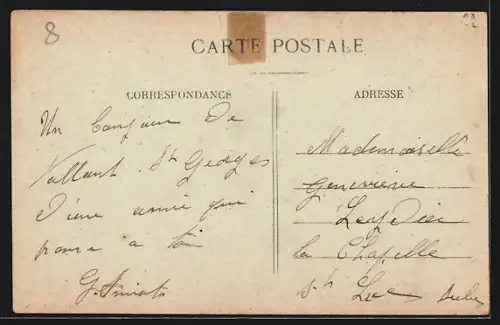 8
CARTE POSTALE
CORRESPONDANCE
ADRESSE
Un Bonjour De
Vallant St Georges
D'une amie qui
pense a toi
Mademoiselle
Genevieve
La Chapelle
St Luc Aube